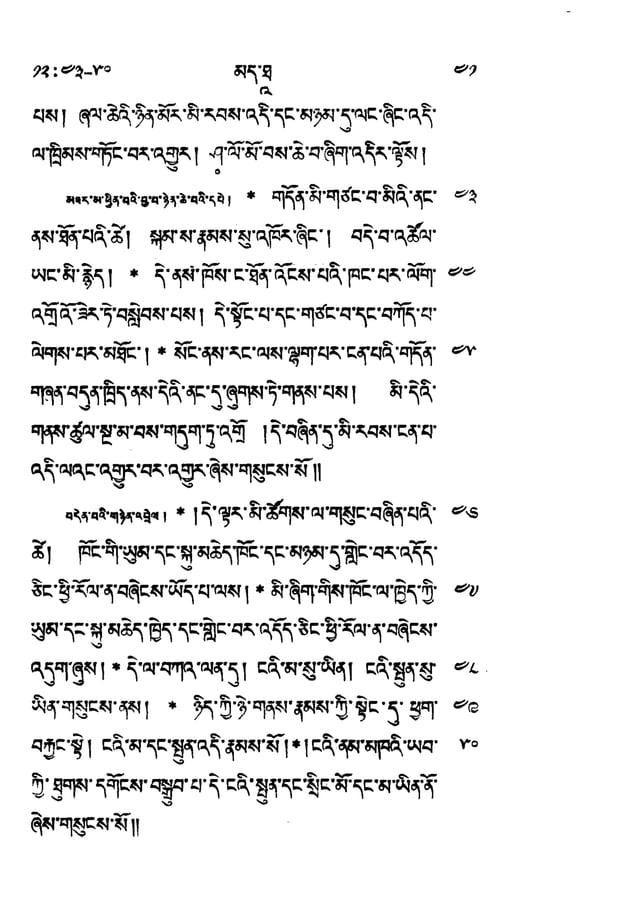 ༡༢:༤༣-༥༠ མད་ཐཱ ༤༡
པས། ཞལ་ཆེའི་ཉིན་མོར་མི་རབས་འདི་དང་མཉམ་དུ་ལང་ཞིང་འདི་
ལ་ཁྲིམས་གཏོང་བར་འགྱུར། ཤ༹་ལོ་མོ་བས་ཆེ་བ་ཞིག་འདིར་ལྟོས།
མཐར་མ་ཕྱིན་པའི་བྱ་བ་ཉེན་ཆེ་བའི་དཔེ། * གདོན་མི་གཙང་བ་མིའི་ནང་ ༤༣
ནས་ཐོན་པའི་ཚེ། སྐམ་ས་རྣམས་སུ་འཁོར་ཞིང་། བདེ་བ་འཚོལ་
ཡང་མི་རྙེད། * དེ་ནས་ཁོས་ང་ཐོན་འོངས་པའི་ཁང་པར་ལོག་ ༤༤
འགྲོ་འོ་ཟེར་ཏེ་བསླེབས་པས། དེ་སྟོང་པ་དང་གཙང་བ་དང་བཀོད་པ་
ལེགས་པར་མཐོང་། * སོང་ནས་རང་ལས་ལྷག་པར་ངན་པའི་གདོན་ ༤༥
གཞན་བདུན་ཁྲིད་ནས་དེའི་ནང་དུ་ཞུགས་ཏེ་གནས་པས། མི་དེའི་
གནས་ཚུལ་སྔ་མ་བས་གདུག་ཏུ་འགྲོ །དེ་བཞིན་དུ་མི་རབས་ངན་པ་
འདི་ལའང་འགྱུར་བར་འགྱུར་ཞེས་གསུངས་སོ༎
བདེན་པའི་གཉེན་འབྲེལ། * །དེ་ལྟར་མི་ཚོགས་ལ་གསུང་བཞིན་པའི་ ༤༦
ཚེ། ཁོང་གི་ཡུམ་དང་སྐུ་མཆེད་ཁོང་དང་མཉམ་དུ་གླེང་བར་འདོད་
ཅིང་ཕྱི་རོལ་ན་བཞེངས་ཡོད་པ་ལས། * མི་ཞིག་གིས་ཁོང་ལ་ཁྱེད་ཀྱི་ ༤༧
ཡུམ་དང་སྐུ་མཆེད་ཁྱེད་དང་གླེང་བར་འདོད་ཅིང་ཕྱི་རོལ་ན་བཞེངས་
འདུག་ཞུས། * དེ་ལ་བཀའ་ལན་དུ། ངའི་མ་སུ་ཡིན། ངའི་སྤུན་སུ་ ༤༨
ཡིན་གསུངས་ནས། * ཉིད་ཀྱི་ཉེ་གནས་རྣམས་ཀྱི་སྟེང་དུ་ ཕྱག་ ༤༩
བརྐྱང་སྟེ། ངའི་མ་དང་སྤུན་འདི་རྣམས་སོ། * །ངའི་ནམ་མཁའི་ཡབ་ ༥༠
ཀྱི་ ཐུགས་དགོངས་བསྒྲུབ་པ་དེ་ངའི་སྤུན་དང་སྲིང་མོ་དང་མ་ཡིན་ནོ་
ཞེས་གསུངས་སོ༎